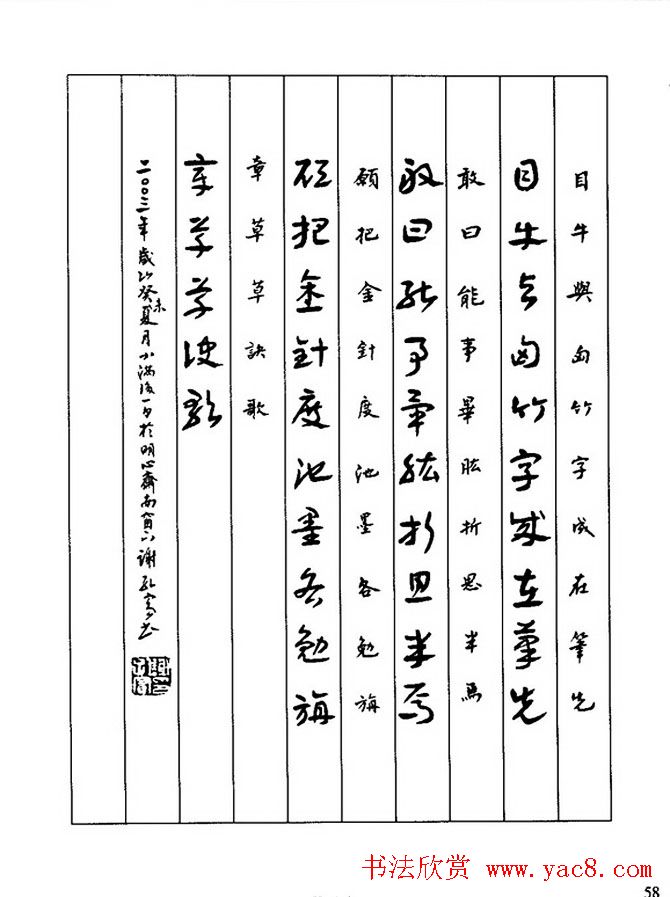 目牛與匈竹字成在筆先
目牛与匈竹字成在筆先
敢曰能事畢肱折思半焉
敢曰能事畢肱折思半焉
願把金針度池墨各勉旃
願把金針度池墨各勉旃
章草草訣歌
章草草訣歌
二〇〇三年歲次癸未夏月小滿後一日於明心齋南窗下謝孔賓書
书法欣赏 www.yac8.com
58